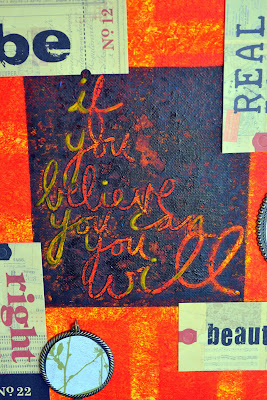 be
No 12
REAL
if
you
believe
you can
you
will
right
No 22
beaut